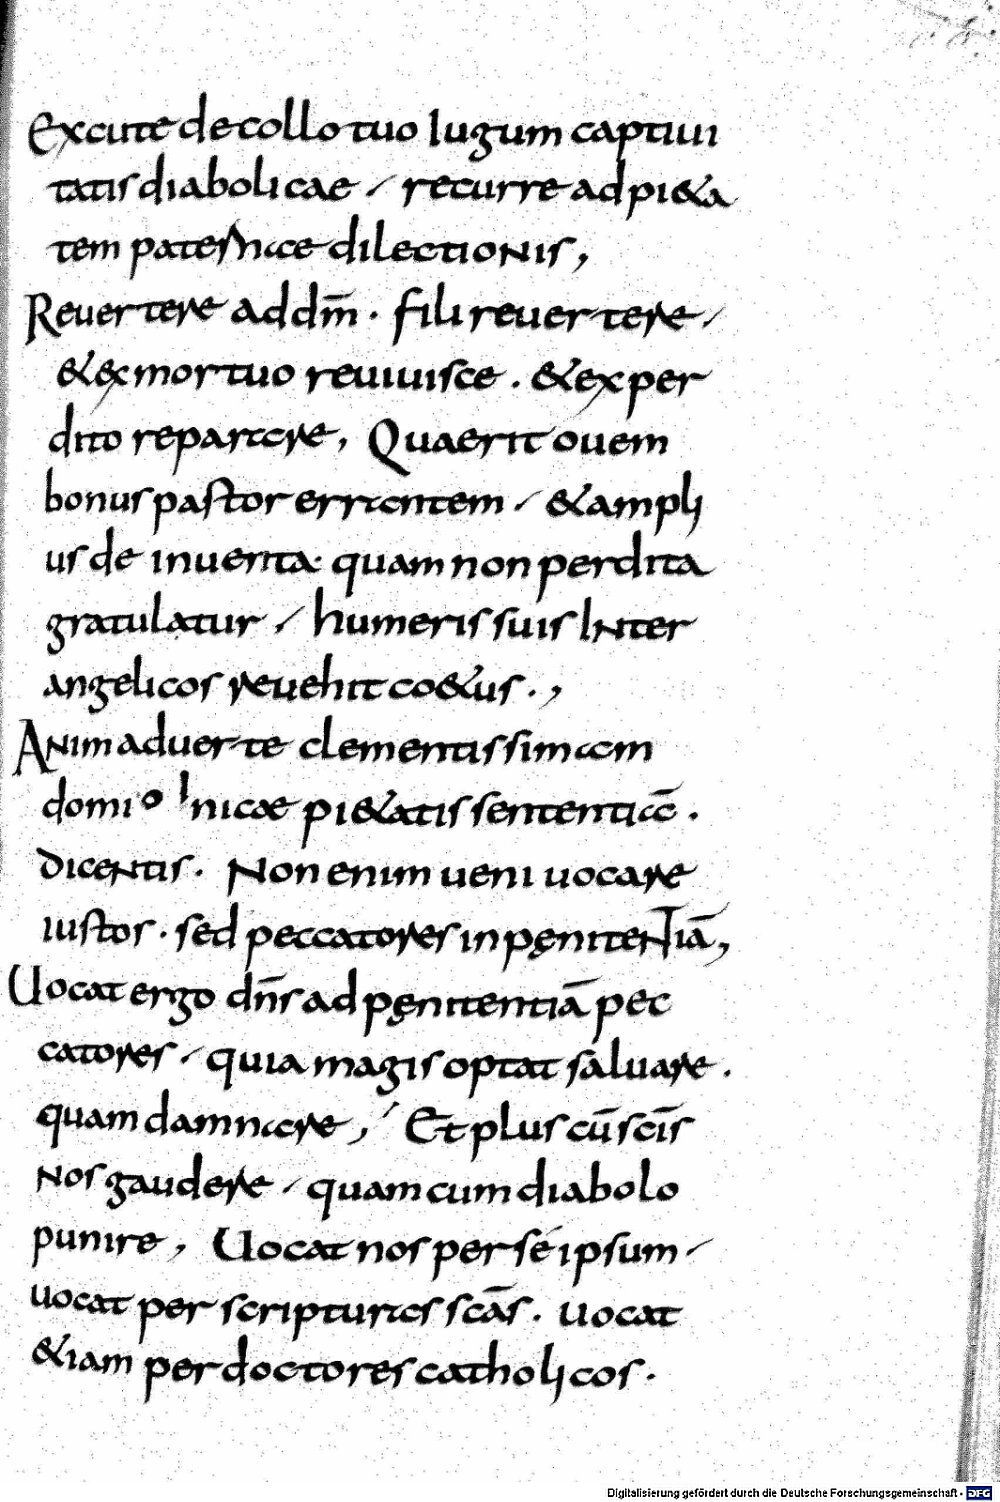 Excute de collo tuo Iugum captiui
tatis diabolicae / recurre ad pi&a
tem paternae dilectionis,
Reuertere ad dm̄ · fili reuertere /
& ex mortuo reuiuisce · & ex per
dito repartare, Quaerit ouem
bonus pastor errantem / & ampli
us de inuenta· quam non perdita
gratulatur / humeris suis Inter
angelicos reuehit co&us · ,
Animaduerte clementissimam
domi nicae pi&atis sententiā ·
Dicentis · Non enim ueni uocare
iustos · sed peccatores in pęnitentiā,
Uocat ergo dn̄s ad pęnitentiā pec
catores / quia magis optat saluare ·
quam damnare, Et plus cū scīs
Nos gaudere / quam cum diabolo
punire, Uocat nos per sé ipsum /
uocat per scripturas scās · uocat
&iam per doctores catholicos ·
Digitalisierung gefördert durch die Deutsche Forschungsgemeinschaft - DFG